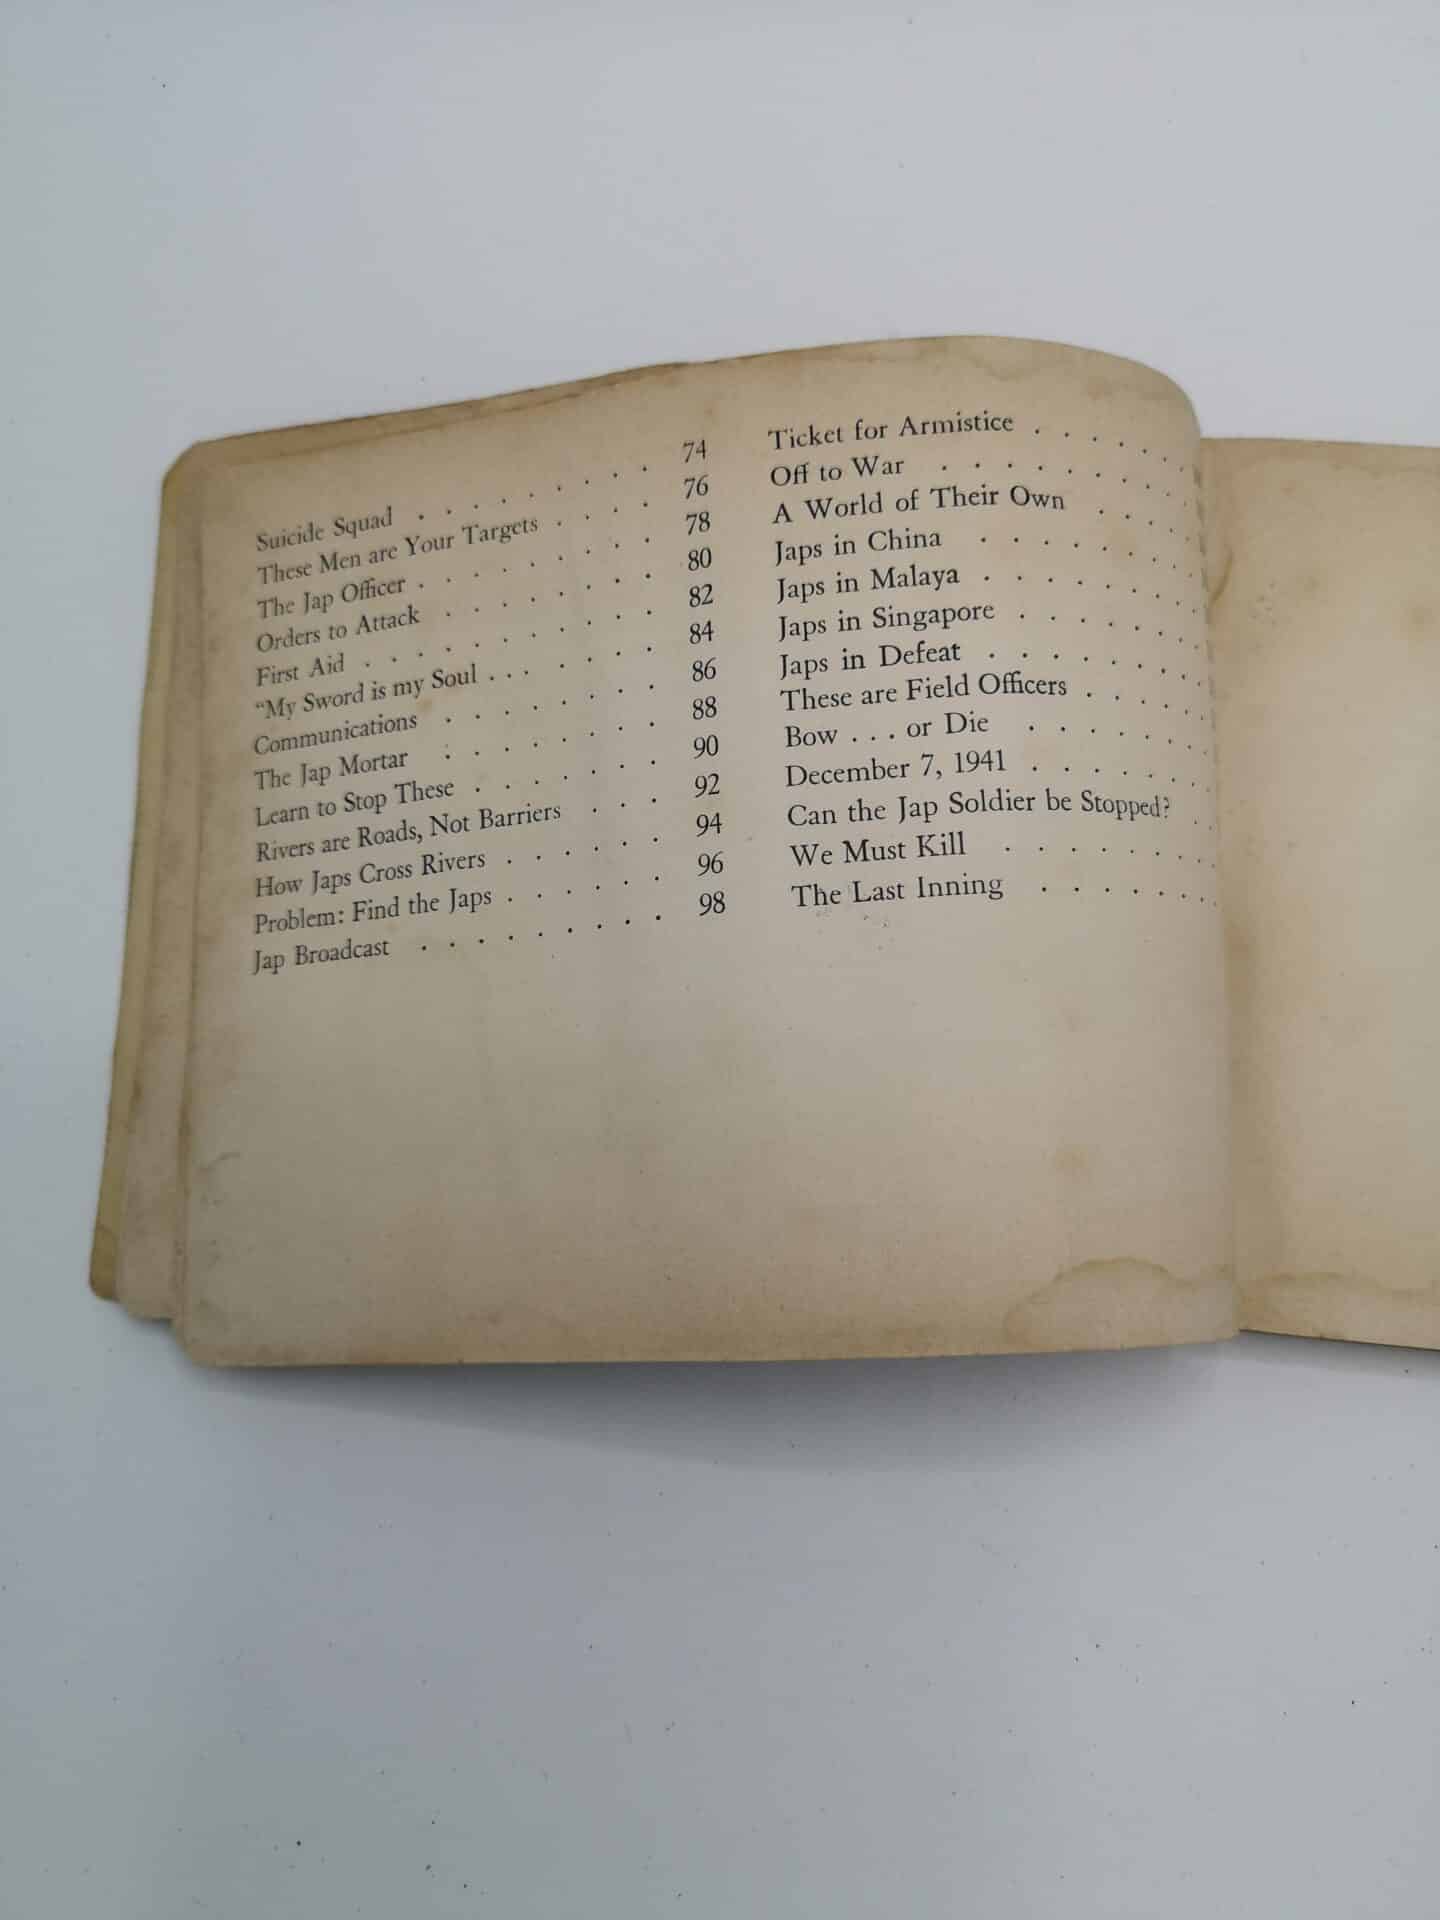 Suicide Squad . . . . . . . . . 74
These Men are Your Targets . . . . 76
The Jap Officer . . . . . . . . . 78
Orders to Attack . . . . . . . . 80
First Aid . . . . . . . . . . . 82
"My Sword is my Soul . . . . . . . 84
Communications . . . . . . . . 86
The Jap Mortar . . . . . . . . 88
Learn to Stop These . . . . . . . 90
Rivers are Roads, Not Barriers . . . 92
How Japs Cross Rivers . . . . . . 94
Problem: Find the Japs . . . . . . 96
Jap Broadcast . . . . . . . . . 98
Ticket for Armistice . . . . . .
Off to War . . . . . . . . .
A World of Their Own . . . .
Japs in China . . . . . . . .
Japs in Malaya . . . . . . . .
Japs in Singapore . . . . . . .
Japs in Defeat . . . . . . . .
These are Field Officers . . . . .
Bow . . . or Die . . . . . . .
December 7, 1941 . . . . . . .
Can the Jap Soldier be Stopped? . .
We Must Kill . . . . . . . .
The Last Inning . . . . . . .